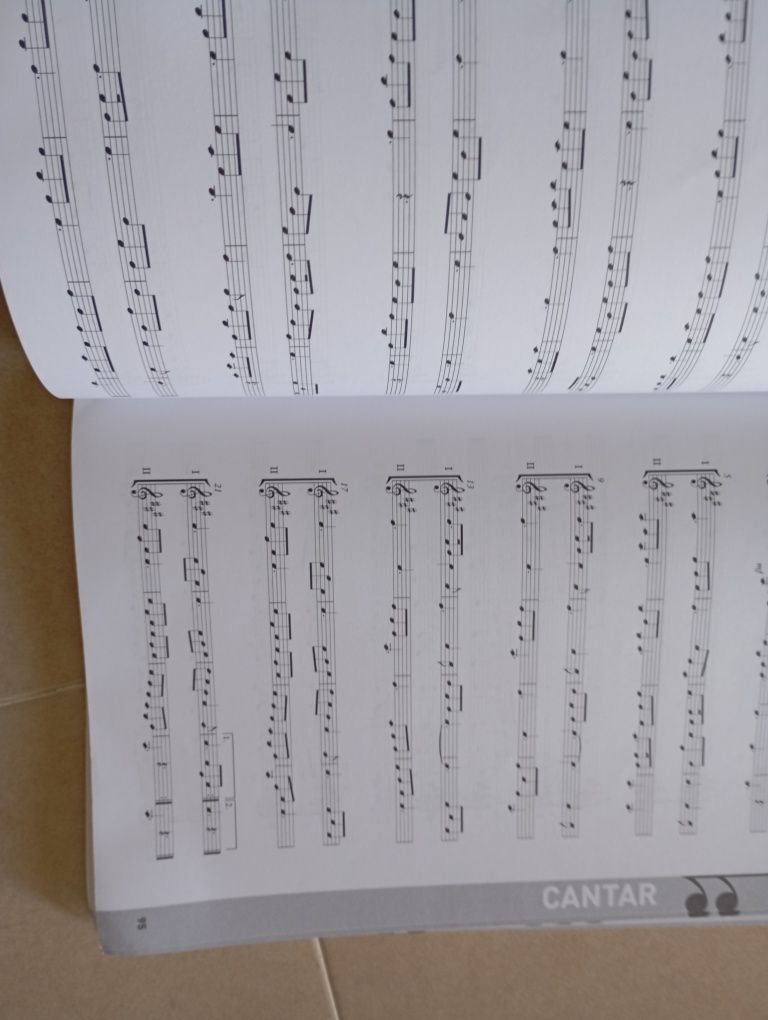 mf
5
I
II
9
I
II
13
I
II
17
I
II
21
I
II
1.
2.
CANTAR
95